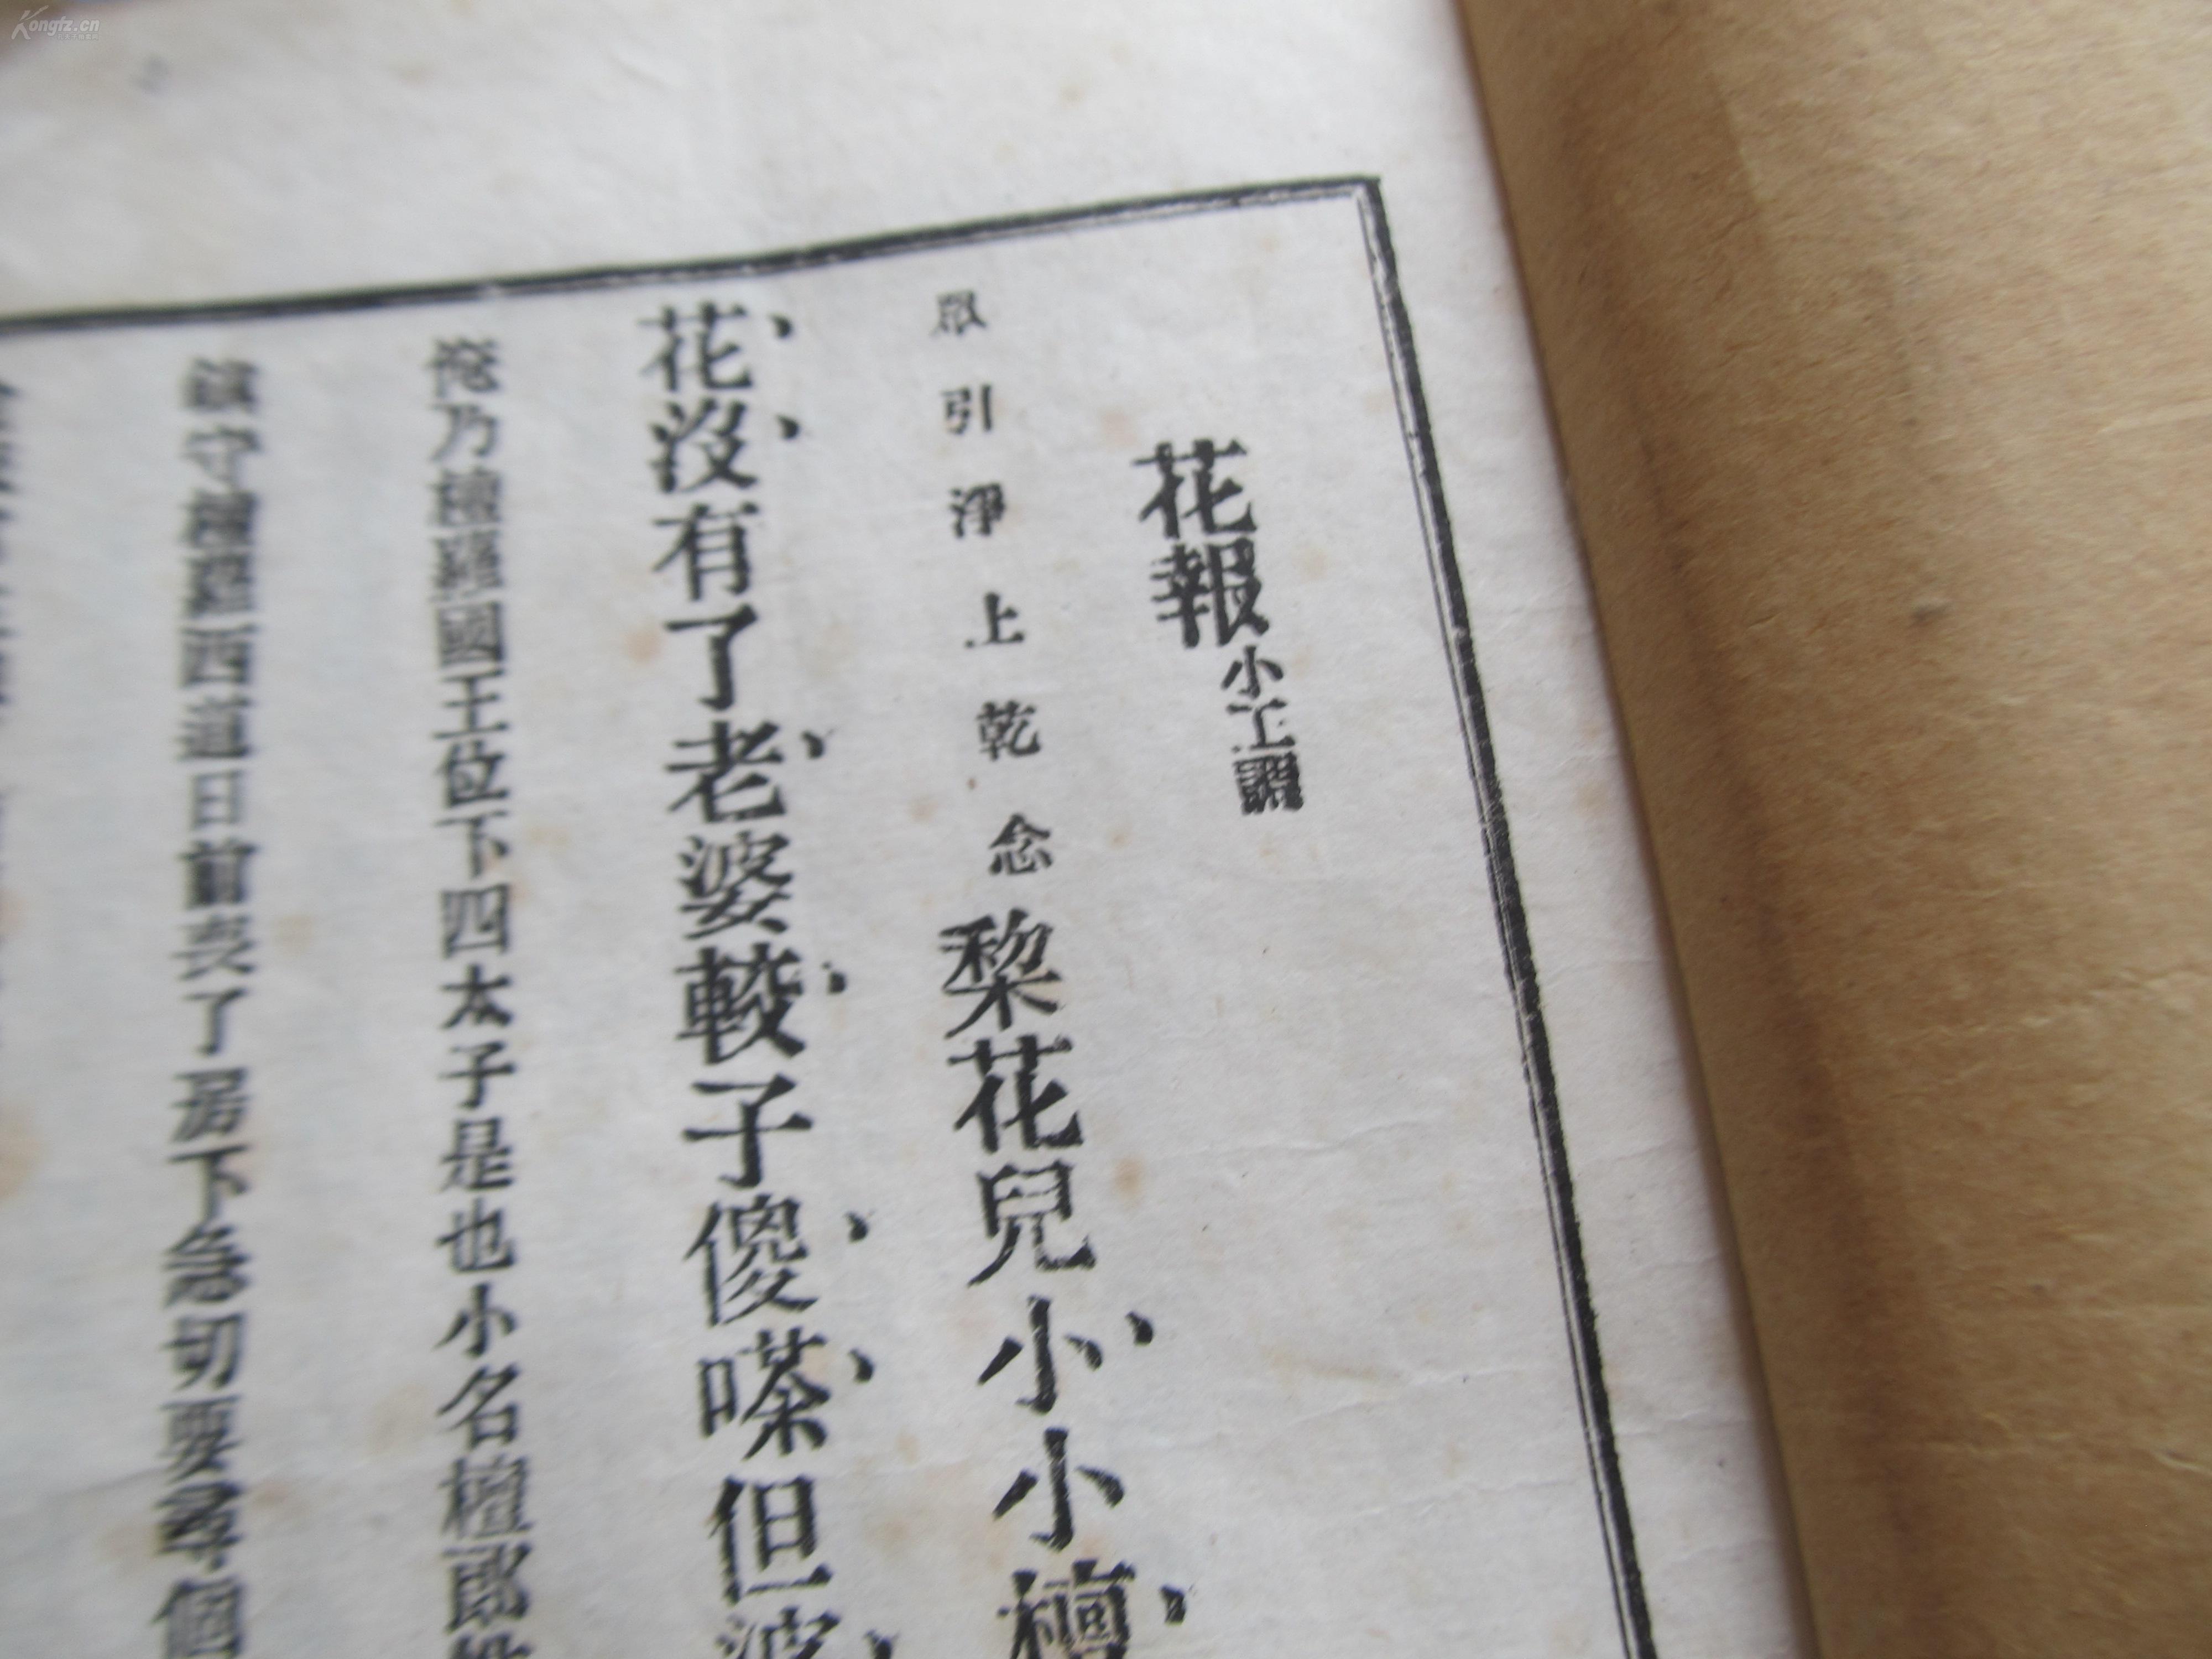 Kongfz.cn
花報小工調
眾引淨上乾念犂花兒小小檀
花沒有了老婆較子傻嗏但波
俺乃檀蘿國王位下四太子是也小名檀郎
鎮守檀蘿西道日前喪了房下急切要尋個